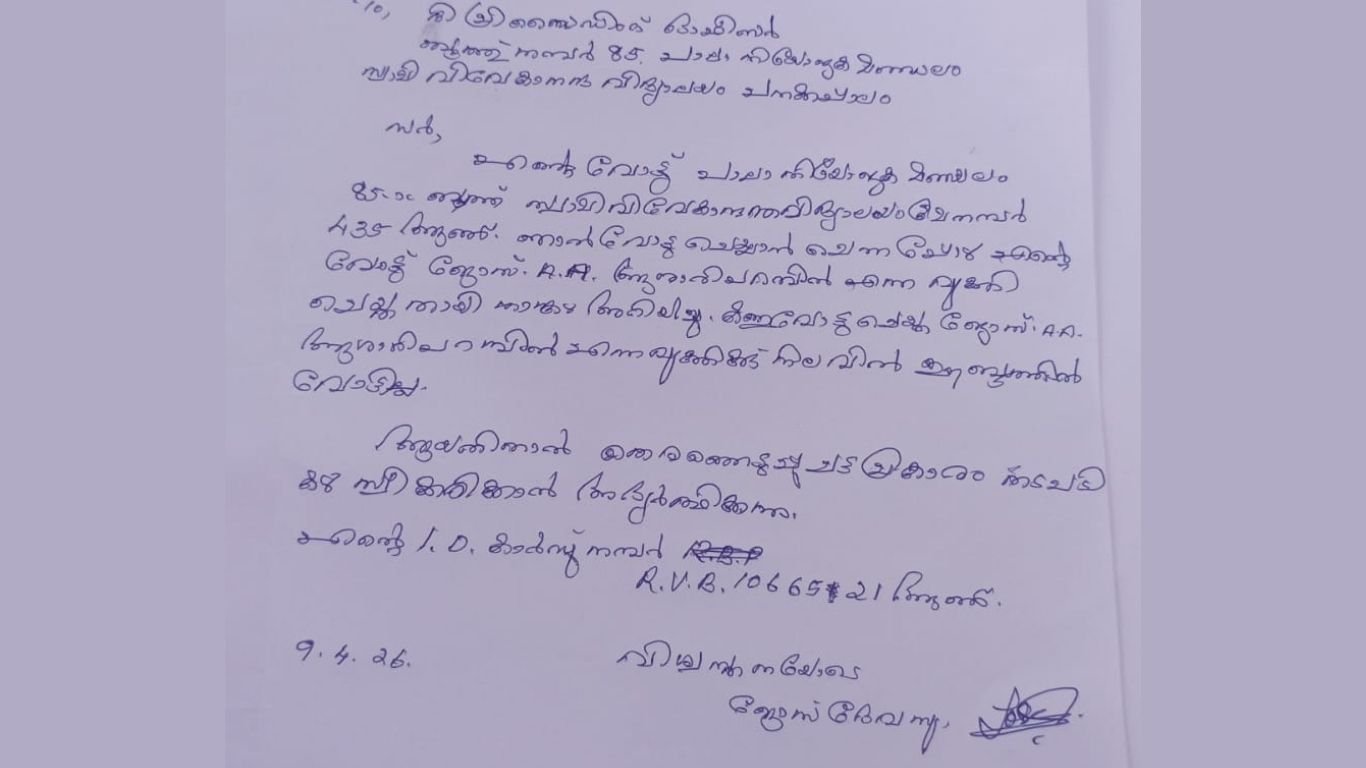 To, ദി പ്രിസൈഡിംഗ് ഓഫീസർ
ബൂത്ത് നമ്പർ 85. പാലാ നിയോജക മണ്ഡലം
സ്വാമി വിവേകാനന്ദ വിദ്യാലയം പനക്കപ്പാലം
സർ,
എന്റെ വോട്ട് പാലാ നിയോജക മണ്ഡലം
85-ാം ബൂത്ത് സ്വാമിവിവേകാനന്ദവിദ്യാലയം നമ്പർ
435 ആണ്. ഞാൻ വോട്ടു ചെയ്യാൻ ചെന്നപ്പോൾ എന്റെ
വോട്ട് ജോസ്. A.A. ആശാരിപറമ്പിൽ എന്ന വ്യക്തി
ചെയ്തതായി അറിയിച്ചു. കള്ളവോട്ടുചെയ്ത ജോസ്. A.A.
ആശാരിപറമ്പിൽ എന്നവ്യക്തിക്ക് നിലവിൽ ഈ ബൂത്തിൽ
വോട്ടില്ല.
ആയതിനാൽ തെരഞ്ഞെടുപ്പു ചട്ടപ്രകാരം നടപടി
കൾ സ്വീകരിക്കാൻ അഭ്യർത്ഥിക്കുന്നു.
എന്റെ I.D. കാർഡ് നമ്പർ
R.V.B. 1066521 ആണ്.
9.4.26.
വിശ്വസ്തതയോടെ
ജോസ് ദേവസ്യ,